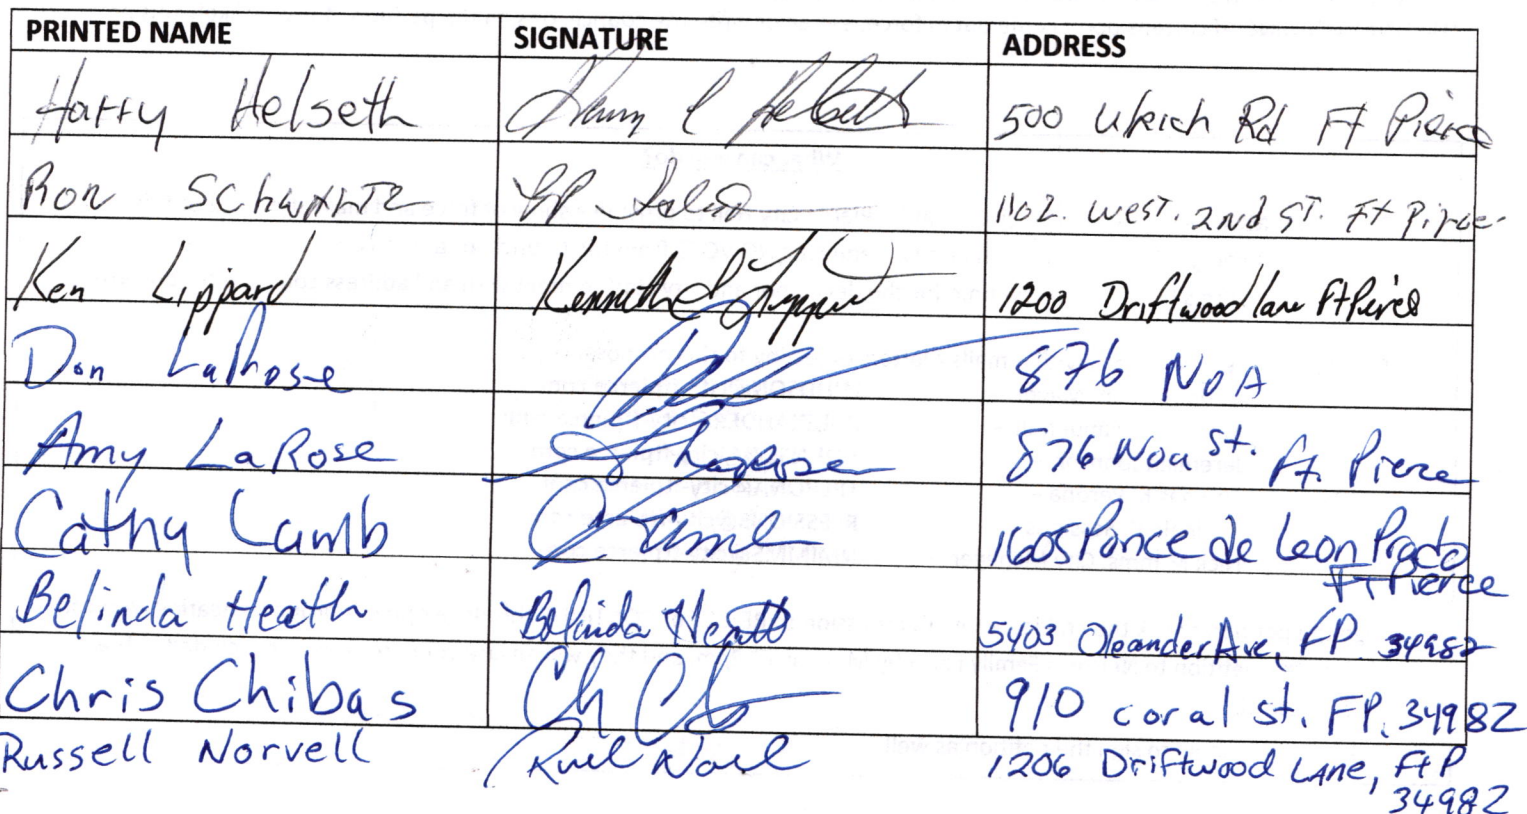 PRINTED NAME SIGNATURE ADDRESS
Harry Helseth Harry Helseth 500 Ulrich Rd Ft Pierce
Ron Schwartz 1102. West. 2nd ST. Ft Pirce
Ken Lippard Kenneth Lippard 1200 Driftwood lane Ft Pierce
Don LaRose 876 NOA
Amy LaRose LaRose 876 Noa St. Ft. Pierce
Cathy Lamb CLamb 1605 Ponce de Leon Prado
Ft Pierce
Belinda Heath Belinda Heath 5403 Oleander Ave, FP. 34982
Chris Chibas 910 coral st. FP. 34982
Russell Norvell 1206 Driftwood LANE, Ft P
34982